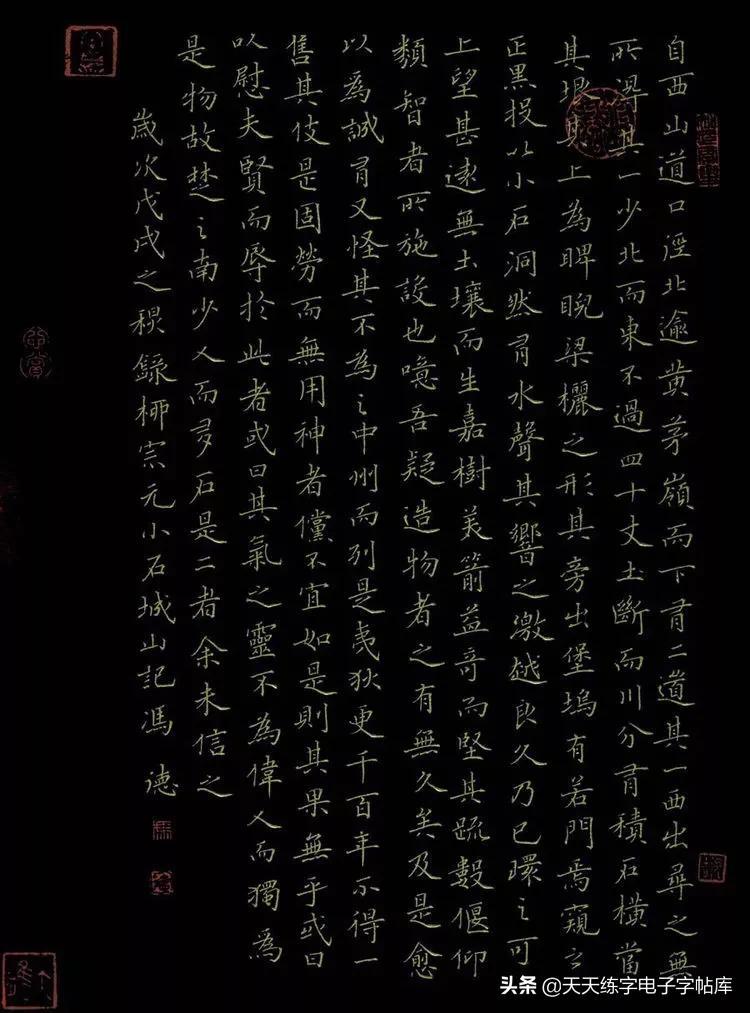 自西山道口徑北逾黄茅嶺而下有二道其一西出尋之無
所得其一少北而東不過四十丈土斷而川分有積石橫當
其垠其上為睥睨梁欐之形其旁出堡塢有若門焉窺之
正黑投以小石洞然有水聲其響之激越良久乃已環之可
上望甚遠無土壤而生嘉樹美箭益奇而堅其疏數偃仰
類智者所施設也噫吾疑造物者之有無久矣及是愈
以為誠有又怪其不為之中州而列是夷狄更千百年不得一
售其伎是固勞而無用神者儻不宜如是則其果無乎或曰
以慰夫賢而辱於此者或曰其氣之靈不為偉人而獨為
是物故楚之南少人而多石是二者余未信之
歲次戊戌之穐錄柳宗元小石城山記馮德
头条 @天天练字电子字帖库